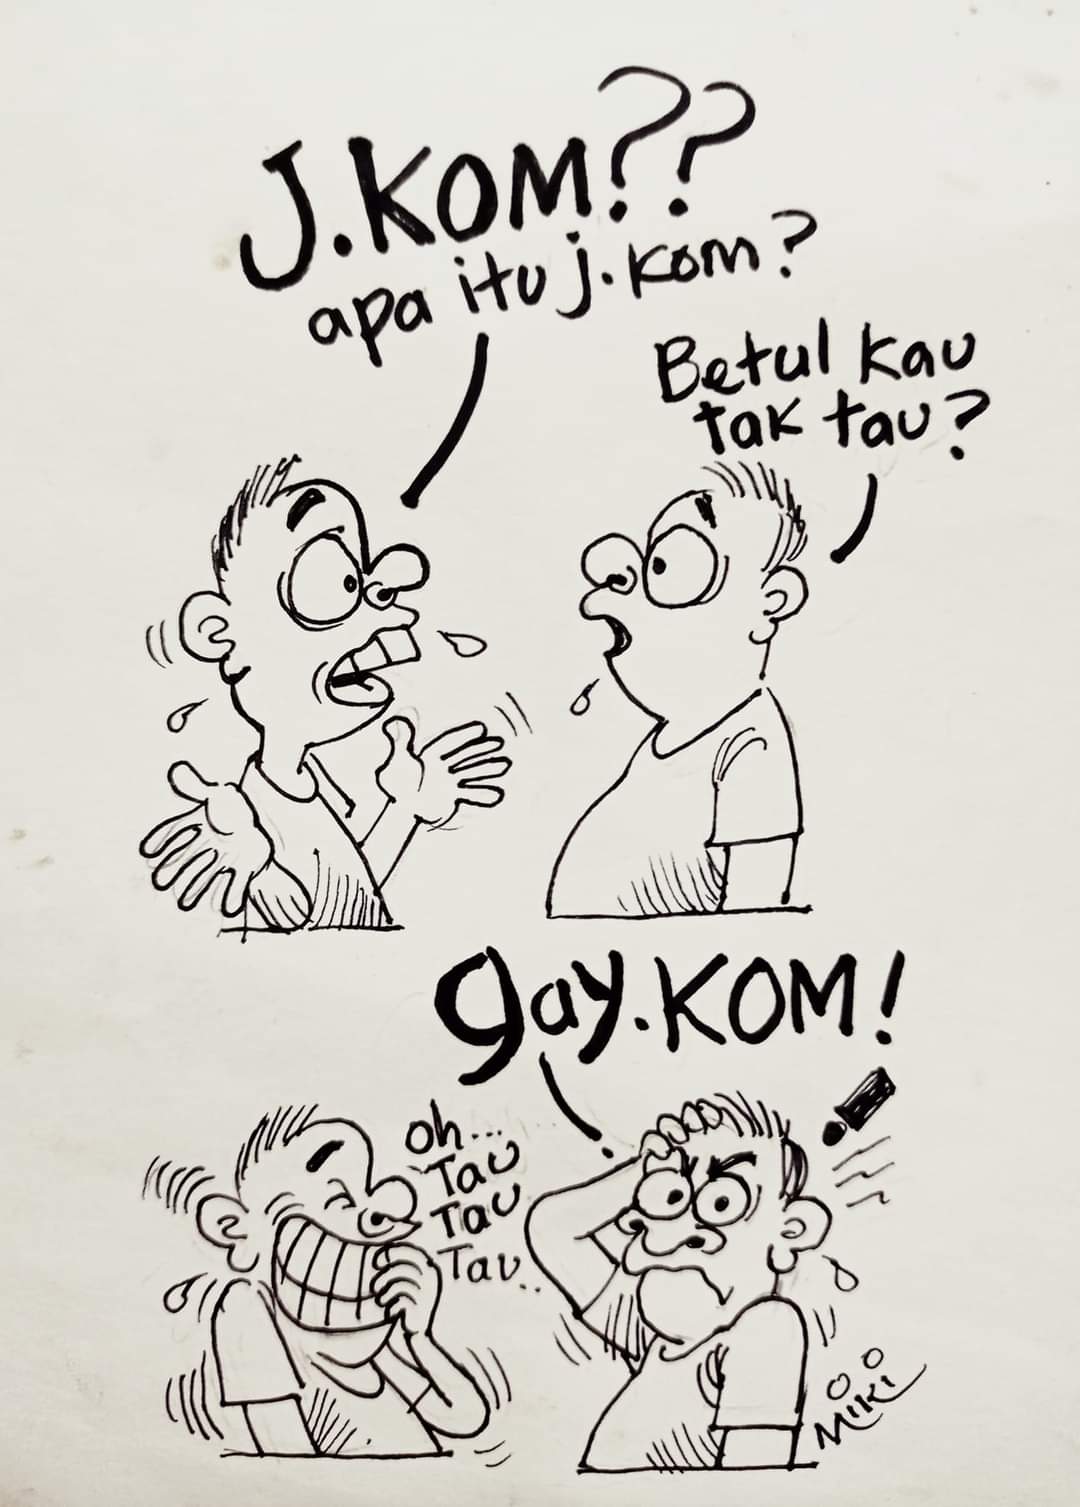 J.KOM??
apa itu j.kom?
Betul kau
tak tau?
gay.KOM!
oh...
Tau
Tau
Tau..
MIKI